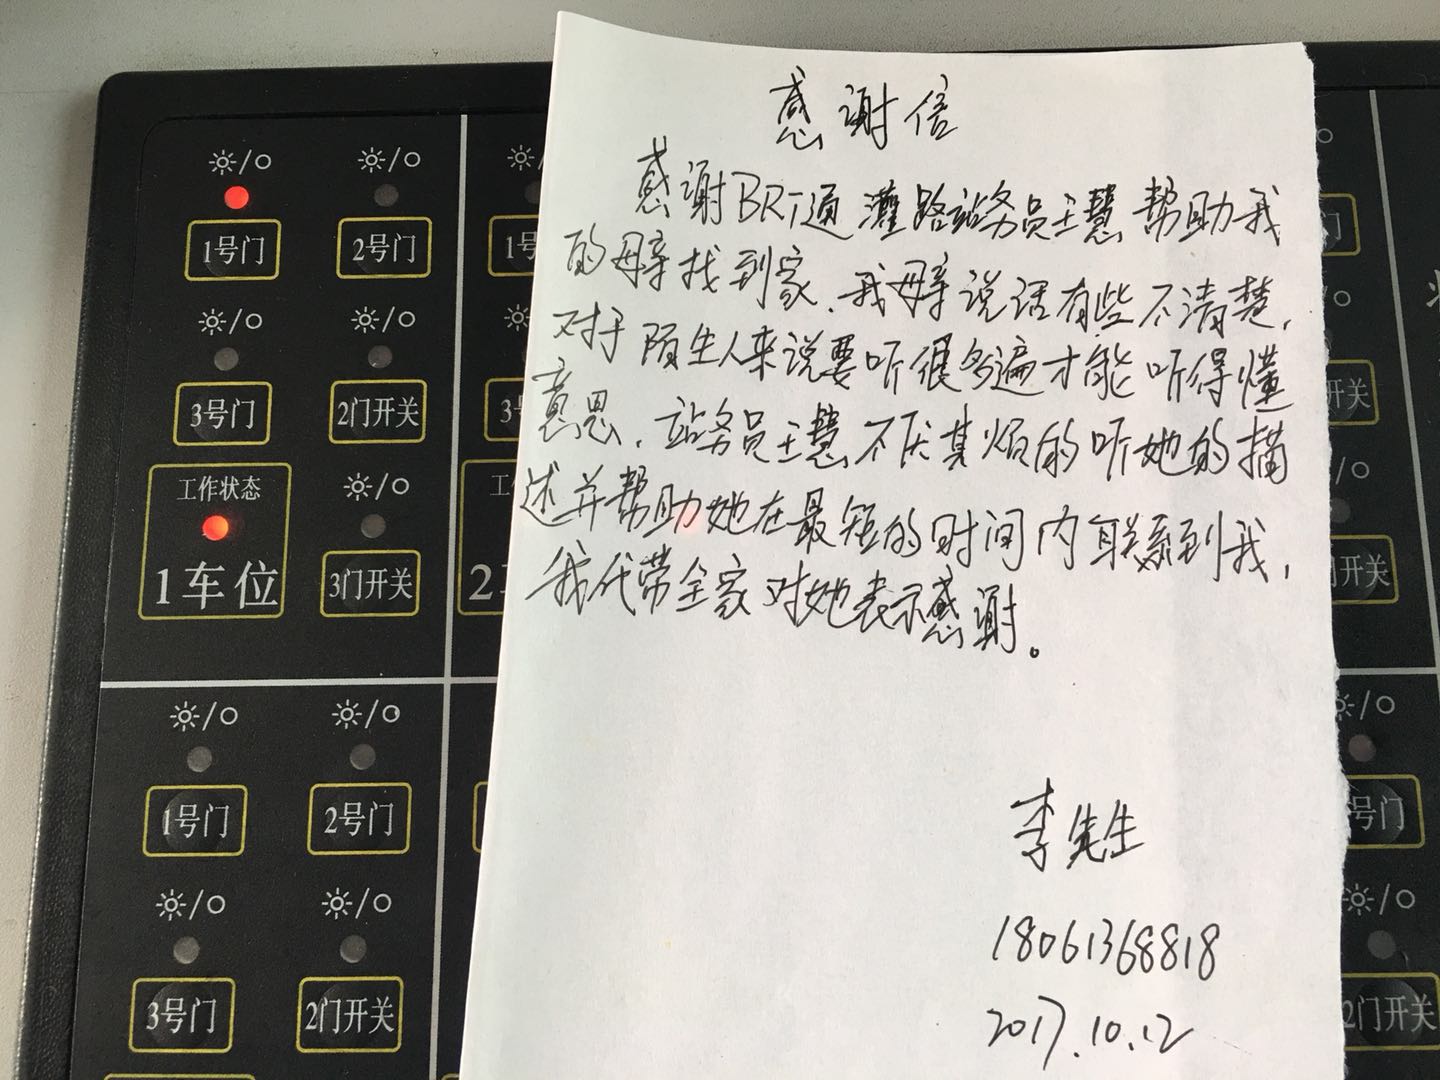 感谢信
感谢BRT通灌路站务员王慧帮助我
的母亲找到家、我母亲说话有些不清楚,
对于陌生人来说要听很多遍才能听得懂
意思、站务员王慧不厌其烦的听她的描
述并帮助她在最短的时间内联系到我,
我代带全家对她表示感谢。
李先生
18061368818
2017.10.12
1号门
2号门
1号
3号门
2门开关
3号
工作状态
1车位
3门开关
工
2
1号门
2号门
3号门
2门开关
门
开关
门开关
号门
2门开关